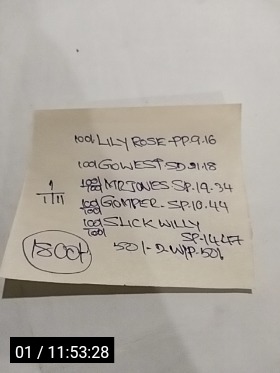 100/ LILY ROSE-PP.9-16
100/ GOWEST SD 21-18
100/ 100/ MR JONES SP-19-34
100/ 100/ GOMPER-SP.10.44
100/ 100/ SLICK WILLY
SP-14-47
50/-2 W/P-50/
1
1 111
1800/
01 / 11:53:28